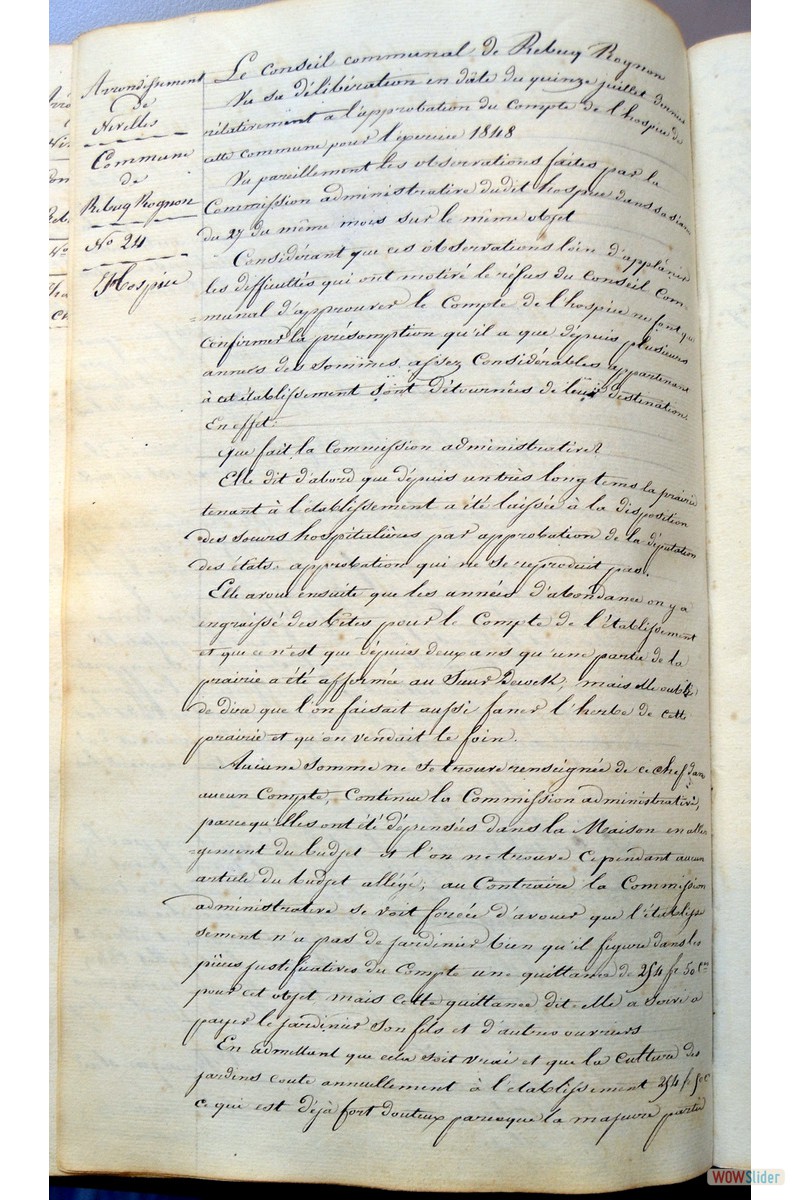 Arrondissement
de
Nivelles
Commune
de
Rebecq Rognon
No 24
Hospice
Le Conseil communal de Rebecq Rognon
Vu sa délibération en date du quinze juillet dernier
rélativement à l'approbation du Compte de l'hospice de
cette Commune pour l'exercice 1848
Vu pareillement les observations faites par la
Commission administrative dudit hospice dans sa séance
du 27 du même mois sur le même objet
Considérant que ces observations loin d'applanir
les difficultés qui ont motivé le réfus du Conseil Com=
=munal d'approuver le Compte de l'hospice ne font que
Confirmer la présomption qu'il a que dépuis plusieurs
années des sommes assez Considérables appartenant
à cet établissement sont détournées de leur destination.
En effet:
que fait la Commission administrative?
Elle dit d'abord que dépuis un très long tems la prairie
tenant à l'établissement a été laissée à la disposition
des sœurs hospitalières par approbation de la députation
des états, approbation qui ne se reproduit pas.
Elle avoue ensuite que les années d'abondance on y a
engraissé des bêtes pour le Compte de l'établissement
et que ce n'est que dépuis deux ans qu'une partie de la
prairie a été affermée au Sieur mais elle oublie
de dire que l'on faisait aussi faner l'herbe de cette
prairie et qu'on vendait le foin.
Aucune somme ne se trouve renseignée de ce chef dans
aucun Compte, Continue la Commission administrative,
parcequ'elles ont été dépensées dans la Maison en allé
=gement du budjet et l'on ne trouve Cependant aucun
article du budjet allégé; au Contraire la Commission
administrative se voit forcée d'avouer que l'établis
sement n'a pas de jardinier bien qu'il figure dans les
pièces justificatives du Compte une quittance de 254 fr 50 Cmes
pour cet objet mais cette quittance dit-elle a servi a
payer le jardinier son fils et d'autres ouvriers
En admettant que cela soit vrai et que la culture des
jardins coute annuellement à l'établissement 254 fr 50 c
ce qui est déjà fort douteux parceque la majeure partie
WOWSlider